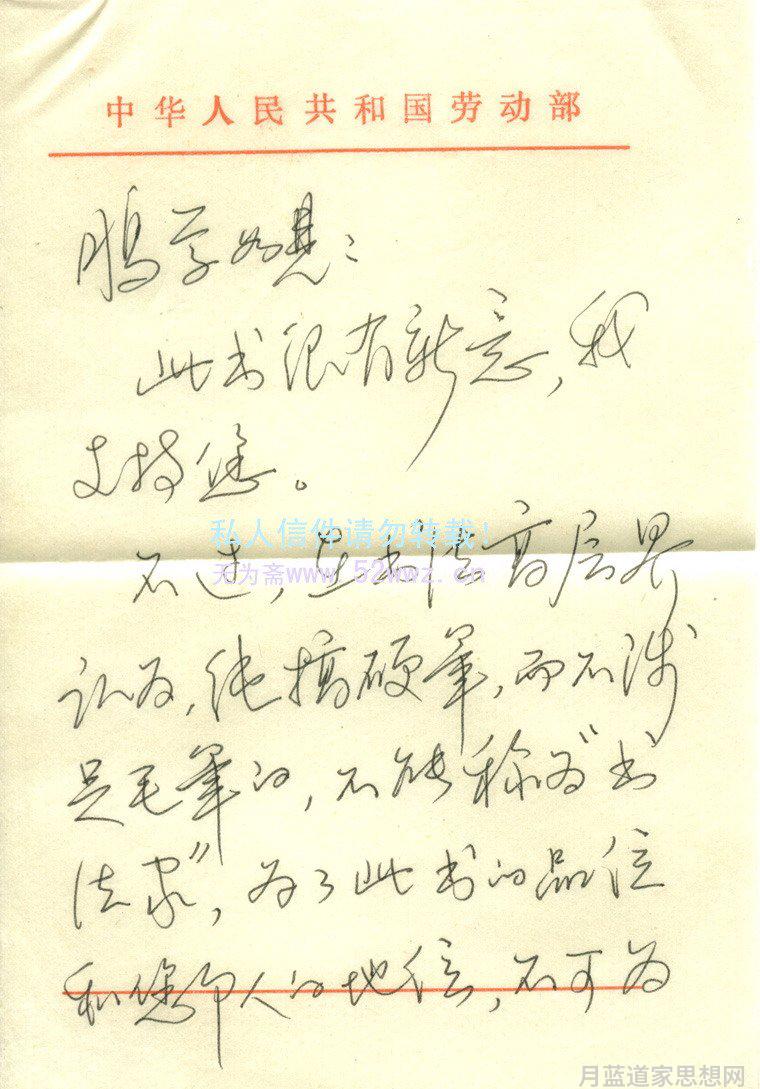 中华人民共和国劳动部
鹏宇如晤：
此书很有新意，我
支持您。
私人信件请勿转载！
不过，在书法高层界
天为斋www.52wwz.cn
认为，纯搞硬笔，而不涉
足毛笔的，不能称为“书
法家”，为了此书的品位
和您个人的地位，不可为
月蓝道家思想网